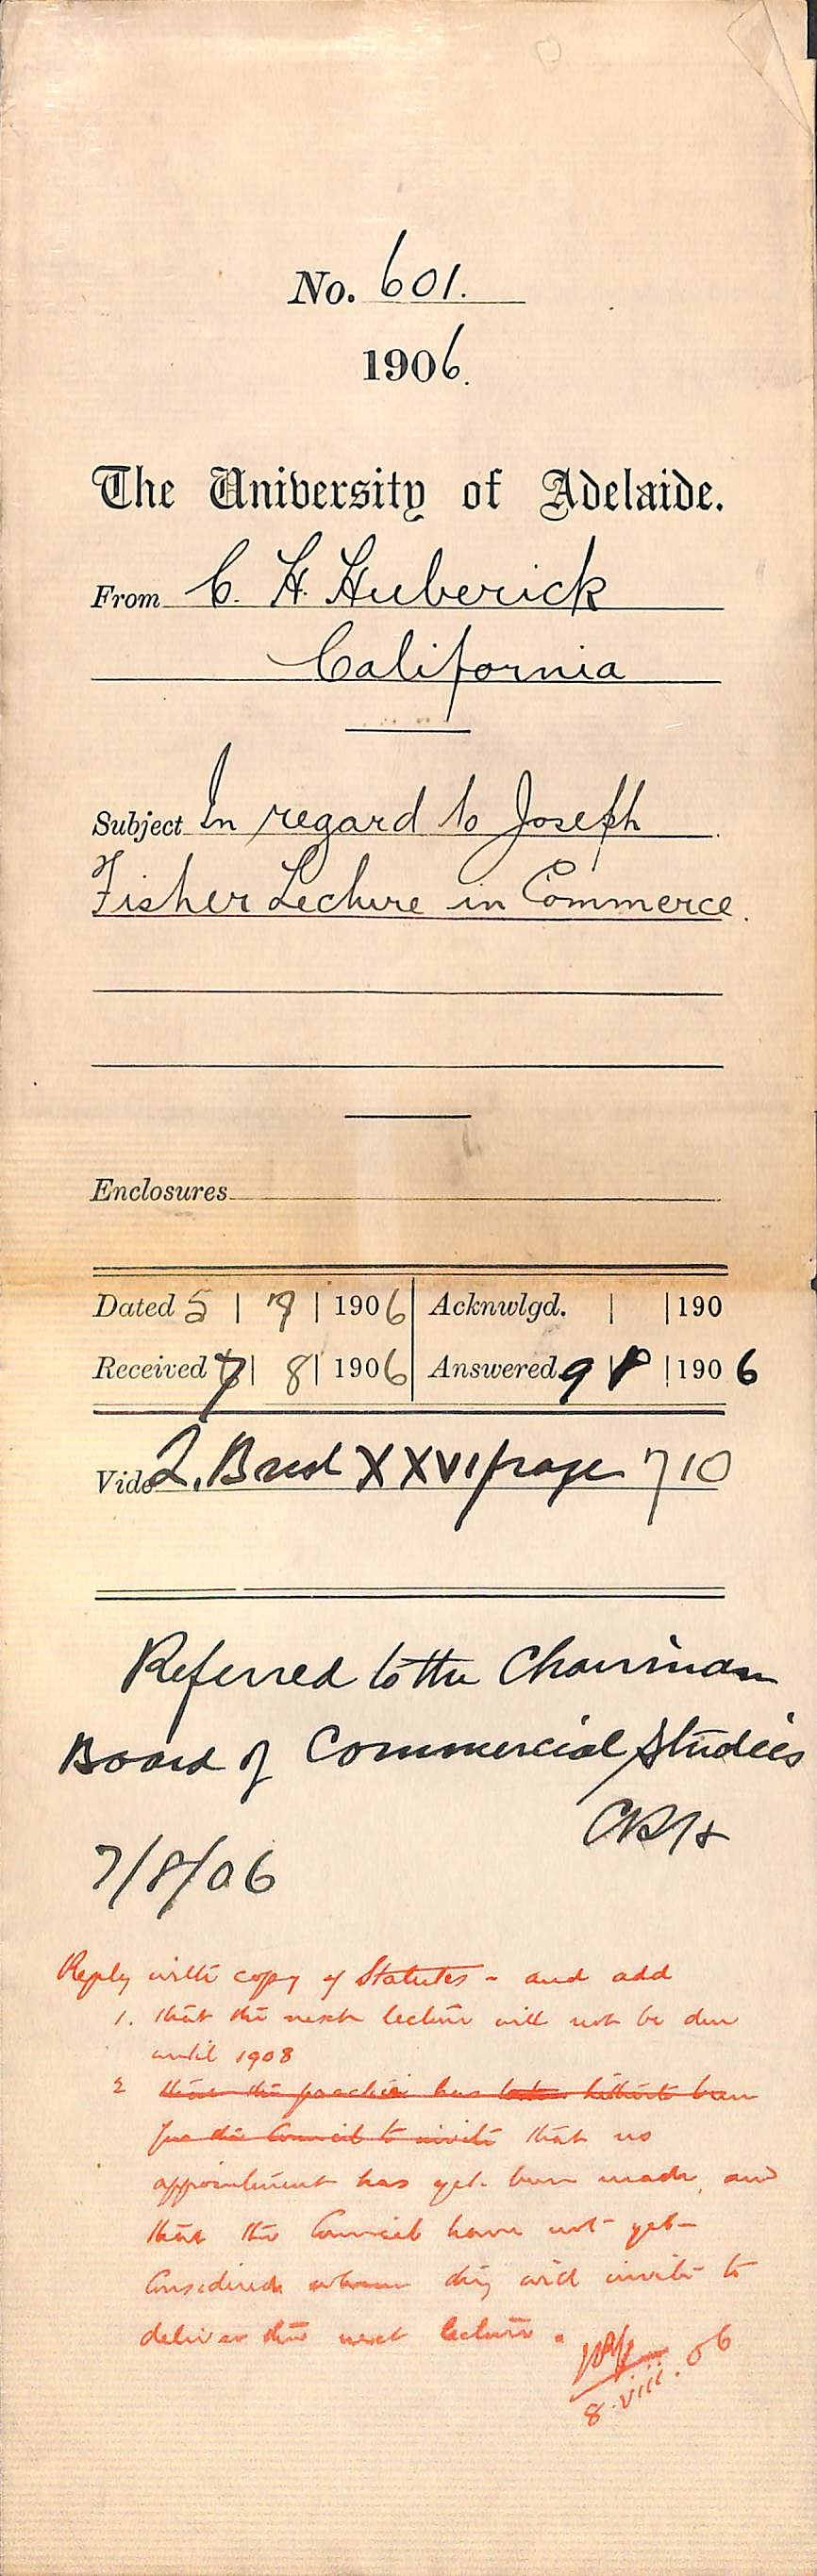 No. 601.
1906.
The University of Adelaide.
From C. H. Huberick
California
Subject In regard to Joseph
Fisher Lecture in Commerce.
Enclosures
Dated 5 | 7 | 1906 Acknwlgd. | | 190
Received 7 | 8 | 1906 Answered 9 | 8 | 1906
Vide L. Book XXVI page 710
Referred to the Chairman
Board of Commercial Studies
CRH
7/8/06
Reply with copy of Statutes - and add
1. that the next lecture will not be due
until 1908
2 that the practice has hitherto been
for the Council to invite that no
appointment has yet been made, and
that the Council have not yet
considered whom they will invite to
deliver the next lecture.
8.viii.06